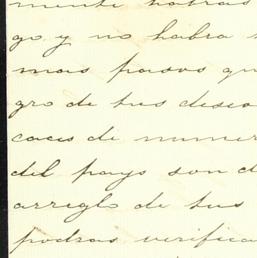 mente habras
go y no habra
mas pasos qu
gro de tus deseo
caces de numer
del pays son d
arreglo de tus
podras verifica